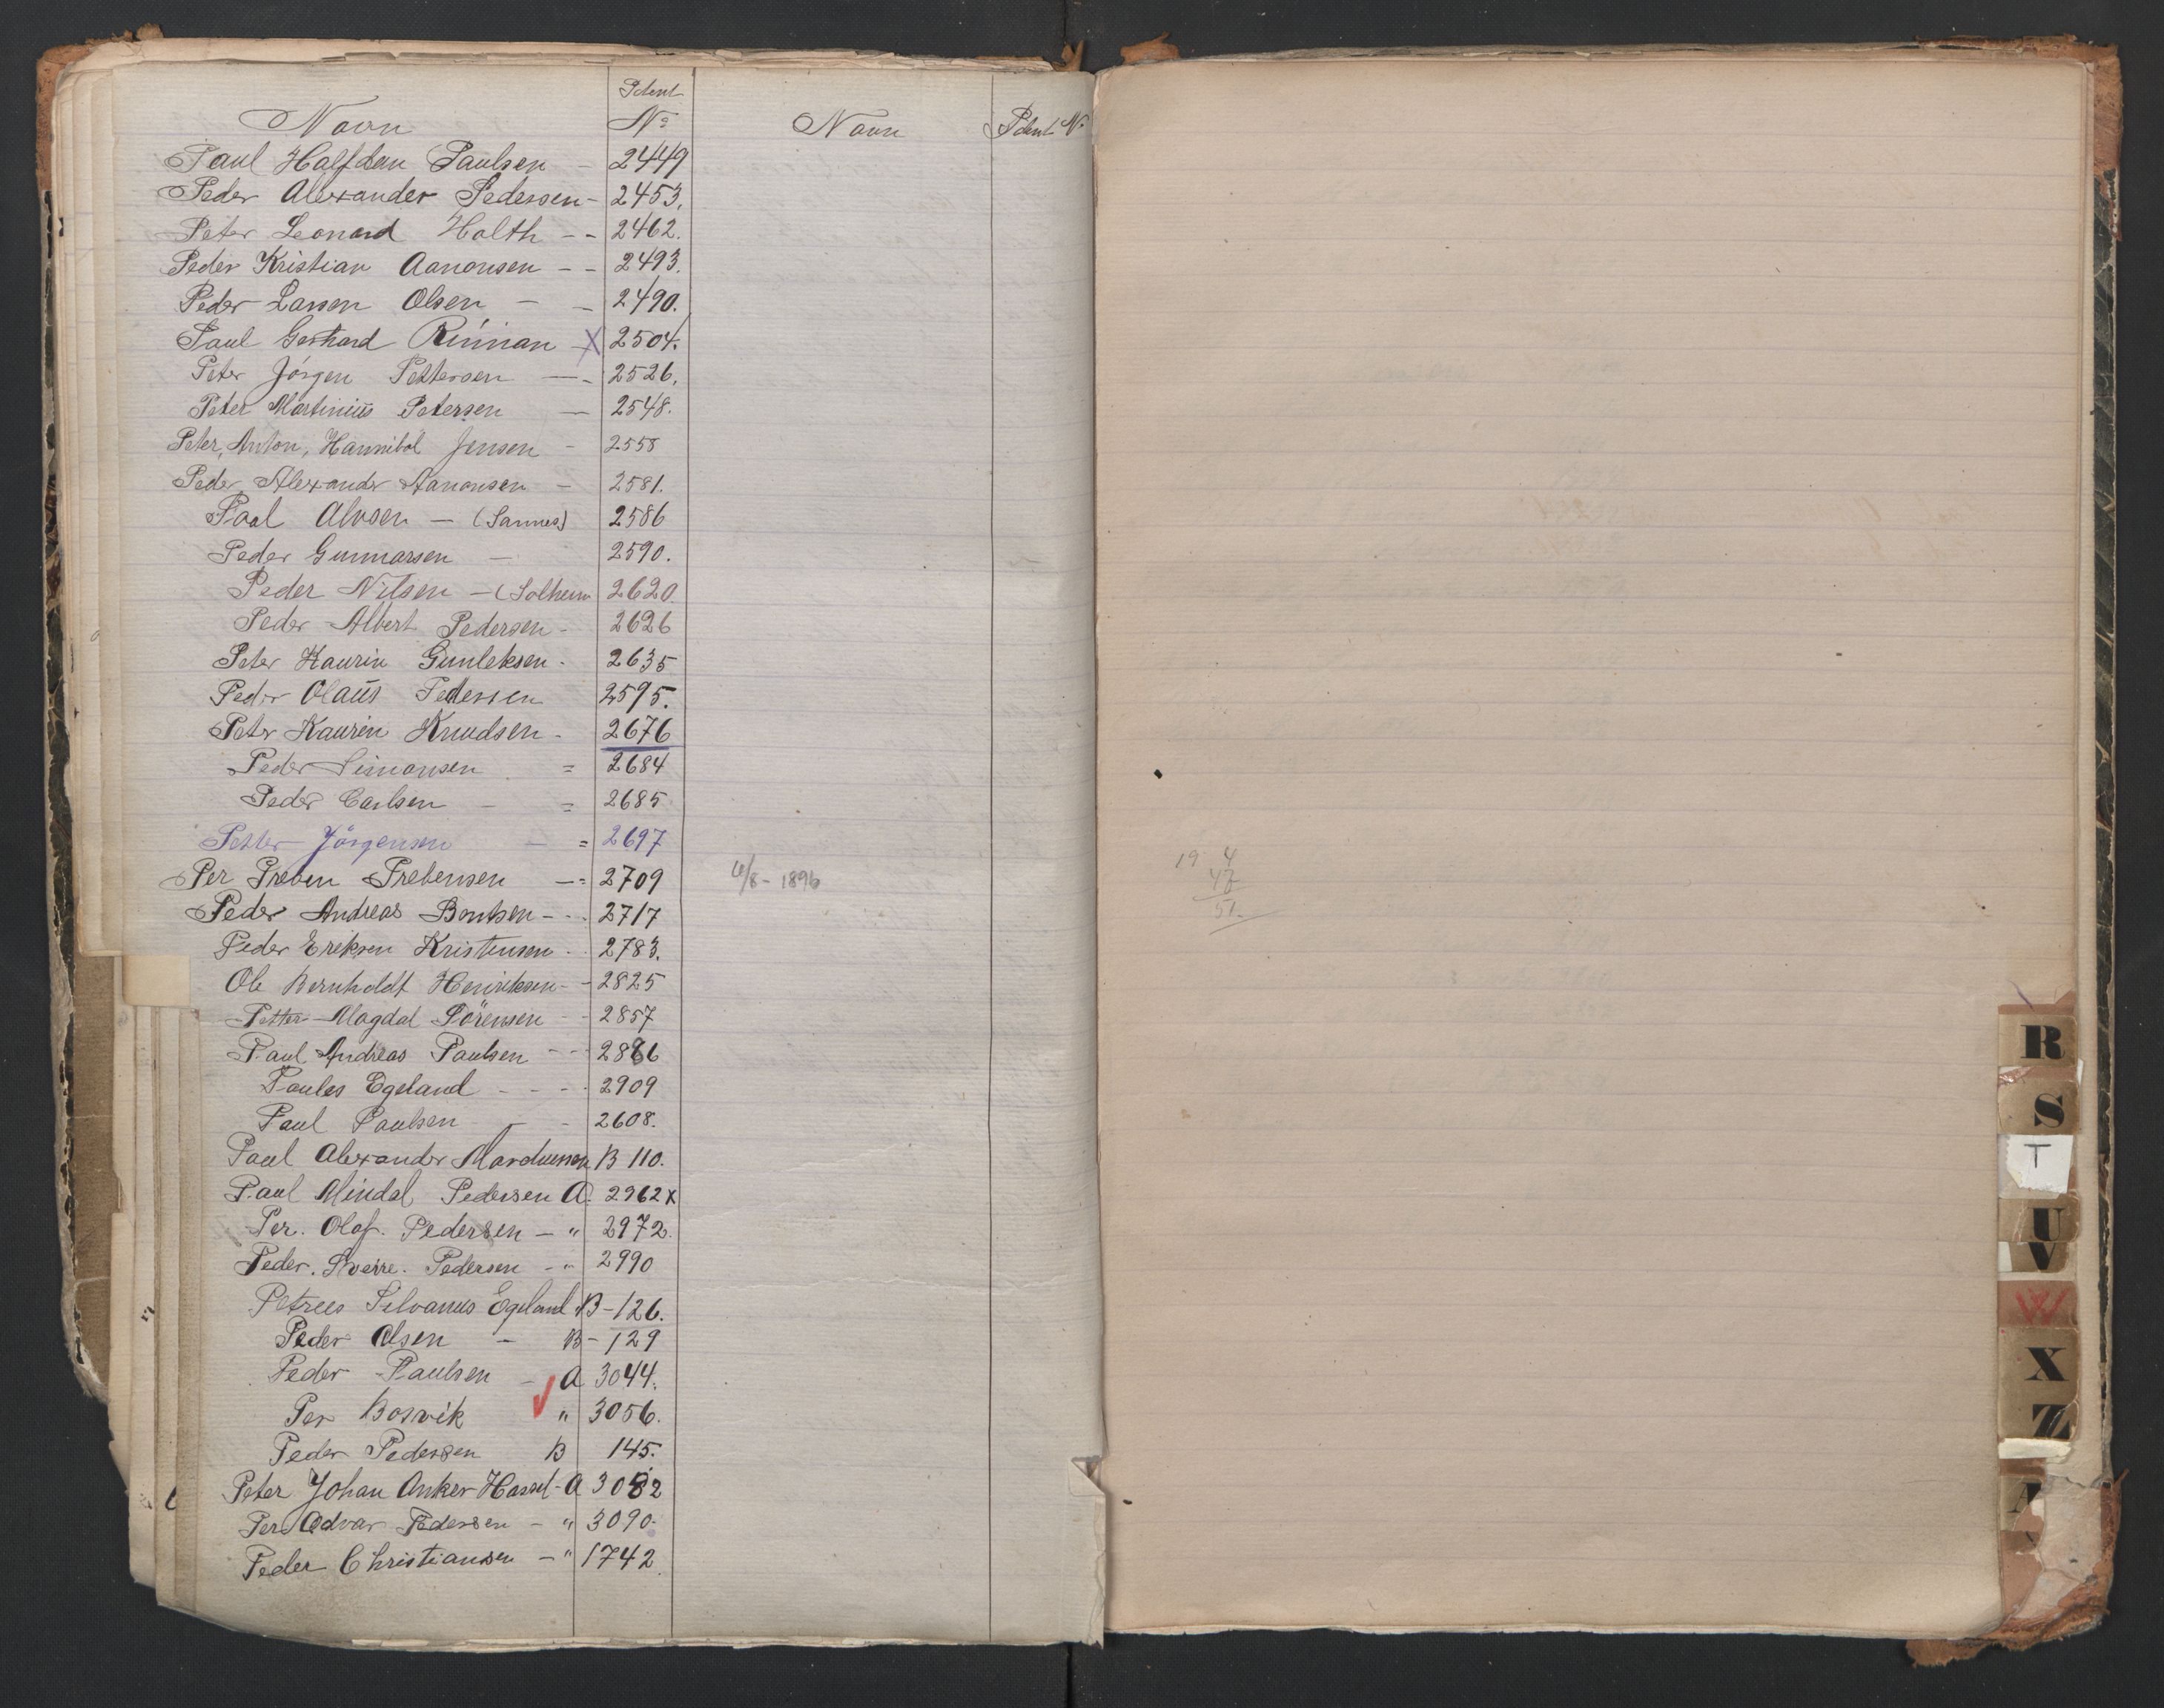 Navn Patent No
Paul Halfdan Paulsen - 2449
Peder Alexander Pedersen - 2453.
Peter Leonard Holth - - 2462.
Peder Kristian Aanonsen - - 2493.
Peder Larsen Olsen - - 2490.
Paul Gerhard Rinnan - X 2504.
Peter Jörgen Pettersen - - 2526.
Peter Martinius Petersen - 2548.
Peter, Anton, Hannibal Jensen - 2558
Peder Alexander Aanonsen - 2581.
Paal Alvsen - (Sannes) 2586
Peder Gunnarsen - 2590.
Peder Nilsen - (Solheim 2620.
Peder Albert Pedersen - 2626
Peter Kaurin Gunleksen - 2635
Peder Olaus Pedersen 2595.
Peter Kaurin Knudsen - 2676
Peder Simonsen = 2684
Peder Carlsen - = 2685
Petter Jörgensen - = 2697
Per Preben Prebensen - = 2709
Peder Andreas Bentsen - - 2717
Peder Eriksen Kristensen - 2783.
Ole Bernholdt Henriksen - - 2825
Petter Magdal Sörensen - - 2857
Paul Andreas Paulsen - - 2886
Paules Egeland - - - 2909
Paul Paulsen - - 2608.
Paul Alexander Marduessen B 110.
Paul Mindal Pedersen A. 2962 x
Per. Olaf. Pedersen - " 2972.
Peder. Sverre. Pedersen - " 2990
Petrees Silvanus Egeland B - 126.
Peder Olsen - B - 129
Peder Paulsen - A 3044.
Per Bosvik " 3056.
Peder Pedersen B 145.
Peter Johan Anker Hassel - A 3082
Per Odvar Pedersen - " 3090.
Peder Christiansen - " 1742.
Navn Patent No
/8 - 1896
19 4
47
51.
R
S
T
U
V
W
X
Z